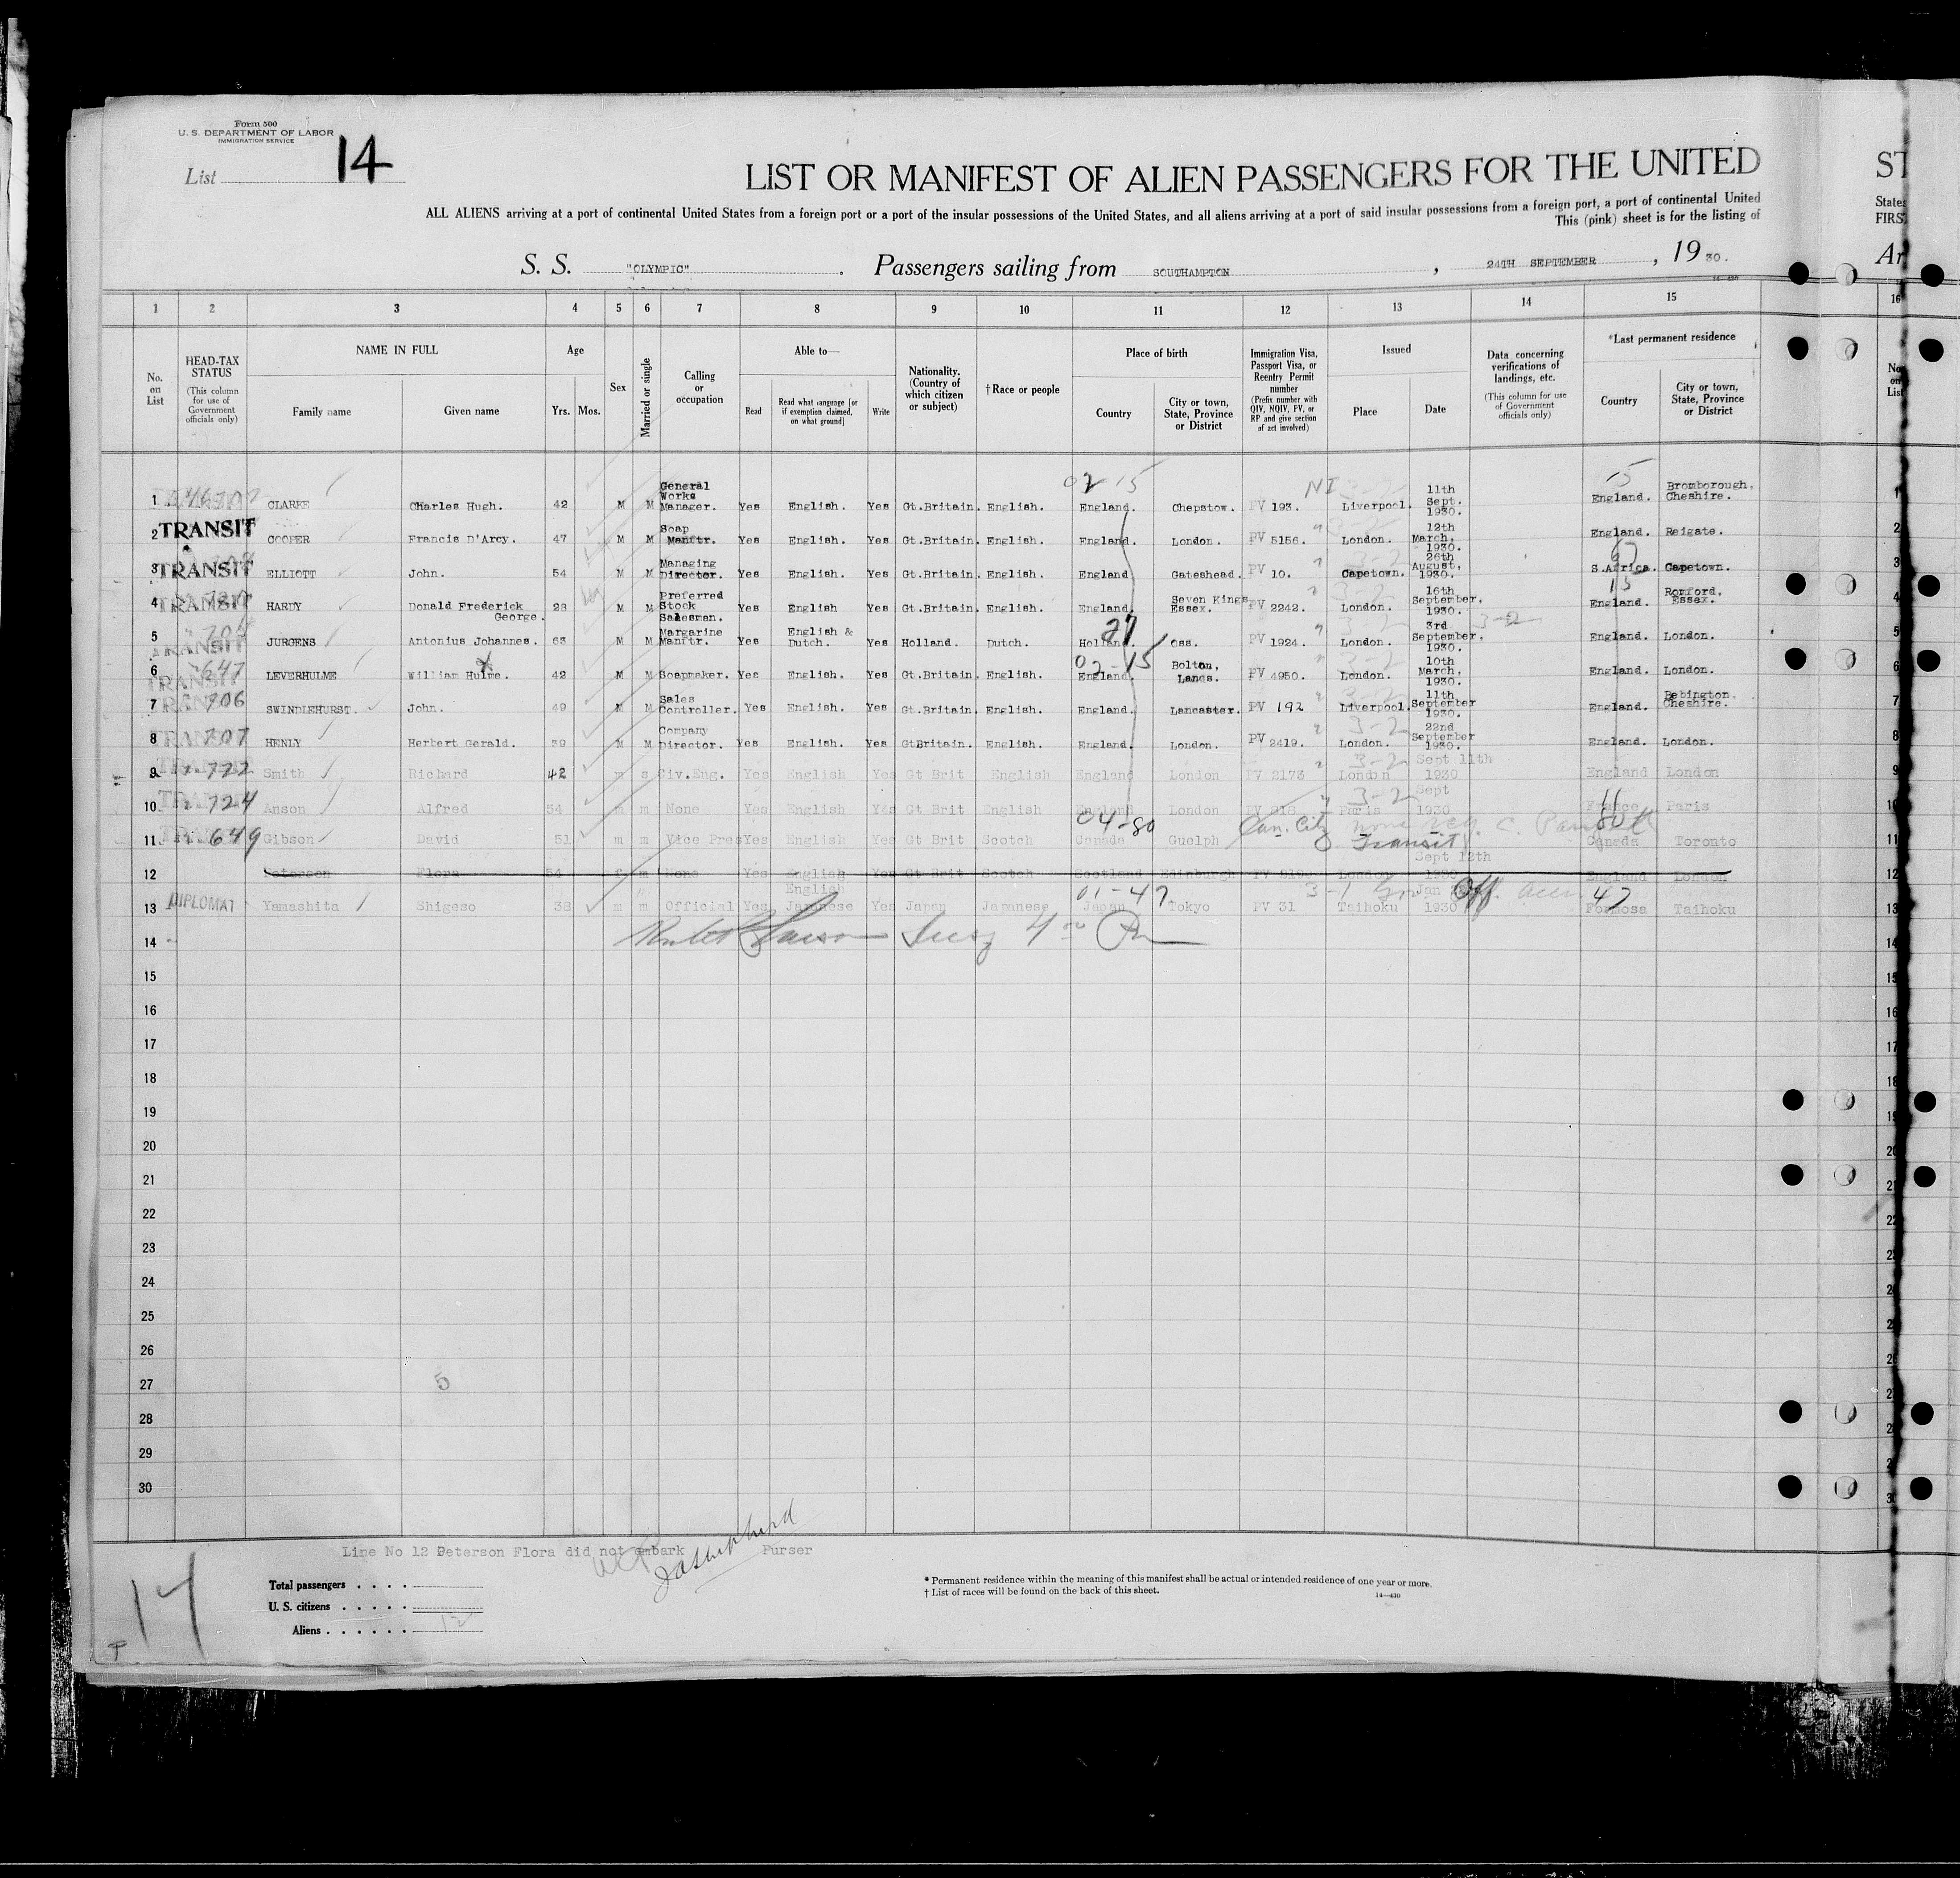 Form 500
U. S. DEPARTMENT OF LABOR
IMMIGRATION SERVICE
List 14
LIST OR MANIFEST OF ALIEN PASSENGERS FOR THE UNITED
ALL ALIENS arriving at a port of continental United States from a foreign port or a port of the insular possessions of the United States, and all aliens arriving at a port of said insular possessions from a foreign port, a port of continental United
This (pink) sheet is for the listing of
ST
States
FIRS
S. S. "OLYMPIC" . Passengers sailing from SOUTHAMPTON , 24TH SEPTEMBER , 19 30.
Ar
1 2 3 4 5 6 7 8 9 10 11 12 13 14 15 16
No. on List
HEAD-TAX STATUS (This column for use of Government officials only)
NAME IN FULL Family name Given name
Age Yrs. Mos.
Sex
Married or single
Calling or occupation
Able to— Read Read what language [or if exemption claimed, on what ground] Write
Nationality. (Country of which citizen or subject)
† Race or people
Place of birth Country City or town, State, Province or District
Immigration Visa, Passport Visa, or Reentry Permit number (Prefix number with QIV, NQIV, PV, or RP and give section of act involved)
Issued Place Date
Data concerning verifications of landings, etc. (This column for use of Government officials only)
*Last permanent residence Country City or town, State, Province or District
No. on List
02-15 NI 15
1 CLARKE Charles Hugh. 42 M M General Works Manager. Yes English. Yes Gt.Britain. English. England. Chepstow. PV 193. Liverpool. 11th Sept. 1930. England. Bromborough, Cheshire. 1
2 TRANSIT COOPER Francis D'Arcy. 47 M M Soap Manftr. Yes English. Yes Gt.Britain. English. England. London. PV 5156. London. 12th March, 1930. England. Reigate. 2
3 TRANSIT ELLIOTT John. 54 M M Managing Director. Yes English. Yes Gt.Britain. English. England Gateshead. PV 10. Capetown. 26th August, 1930. S.Africa. Capetown. 3
4 TRANSIT HARDY Donald Frederick George. 28 M M Preferred Stock Salesman. Yes English Yes Gt.Britain. English. England. Seven Kings Essex. PV 2242. London. 16th September, 1930. 15 England. Romford, Essex. 4
5 TRANSIT JURGENS Antonius Johannes. 63 M M Margarine Manftr. Yes English & Dutch. Yes Holland. Dutch. 27 Holland. Oss. PV 1924. London. 3rd September, 1930. 3-2 England. London. 5
6 647 TRANSIT LEVERHULME William Hulme. 42 M M Soapmaker. Yes English. Yes Gt.Britain. English. 02-15 England. Bolton, Lancs. PV 4950. London. 10th March, 1930. England. London. 6
7 706 SWINDLEHURST. John. 49 M M Sales Controller. Yes English. Yes Gt.Britain. English. England. Lancaster. PV 192 Liverpool. 11th September 1930. England. Bebington. Cheshire. 7
8 707 HENLY Herbert Gerald. 39 M M Company Director. Yes English. Yes GtBritain. English. England. London. PV 2419. London. 22nd September 1930. England. London. 8
9 772 Smith Richard 42 m s Civ.Eng. Yes English Yes Gt Brit English England London PV 2173 London Sept 11th 1930 England London 9
10 724 Anson Alfred 54 m m None Yes English Yes Gt Brit English England London PV 818 Paris Sept 1930 France Paris 10
11 649 Gibson David 51 m m Vice Pres Yes English Yes Gt Brit Scotch 04-80 Canada Guelph Can. City Transit Canada Toronto 11
12 Peterson Flora 54 f m None Yes English Yes Gt Brit Scotch Scotland Edinburgh London Sept 12th 1930 England London 12
13 DIPLOMAT Yamashita Shigeso 38 m m Official Yes English Japanese Yes Japan Japanese 01-47 Japan Tokyo PV 31 Taihoku Jan 1930 3-1 Off. 47 Formosa Taihoku 13
14 14
15 15
16 16
17 17
18 18
19 19
20 20
21 21
22 22
23 23
24 24
25 25
26 26
27 27
5
28 28
29 29
30 30
Line No 12 Peterson Flora did not embark Purser
14
Total passengers
U. S. citizens
Aliens 12
* Permanent residence within the meaning of this manifest shall be actual or intended residence of one year or more.
† List of races will be found on the back of this sheet.
14—430